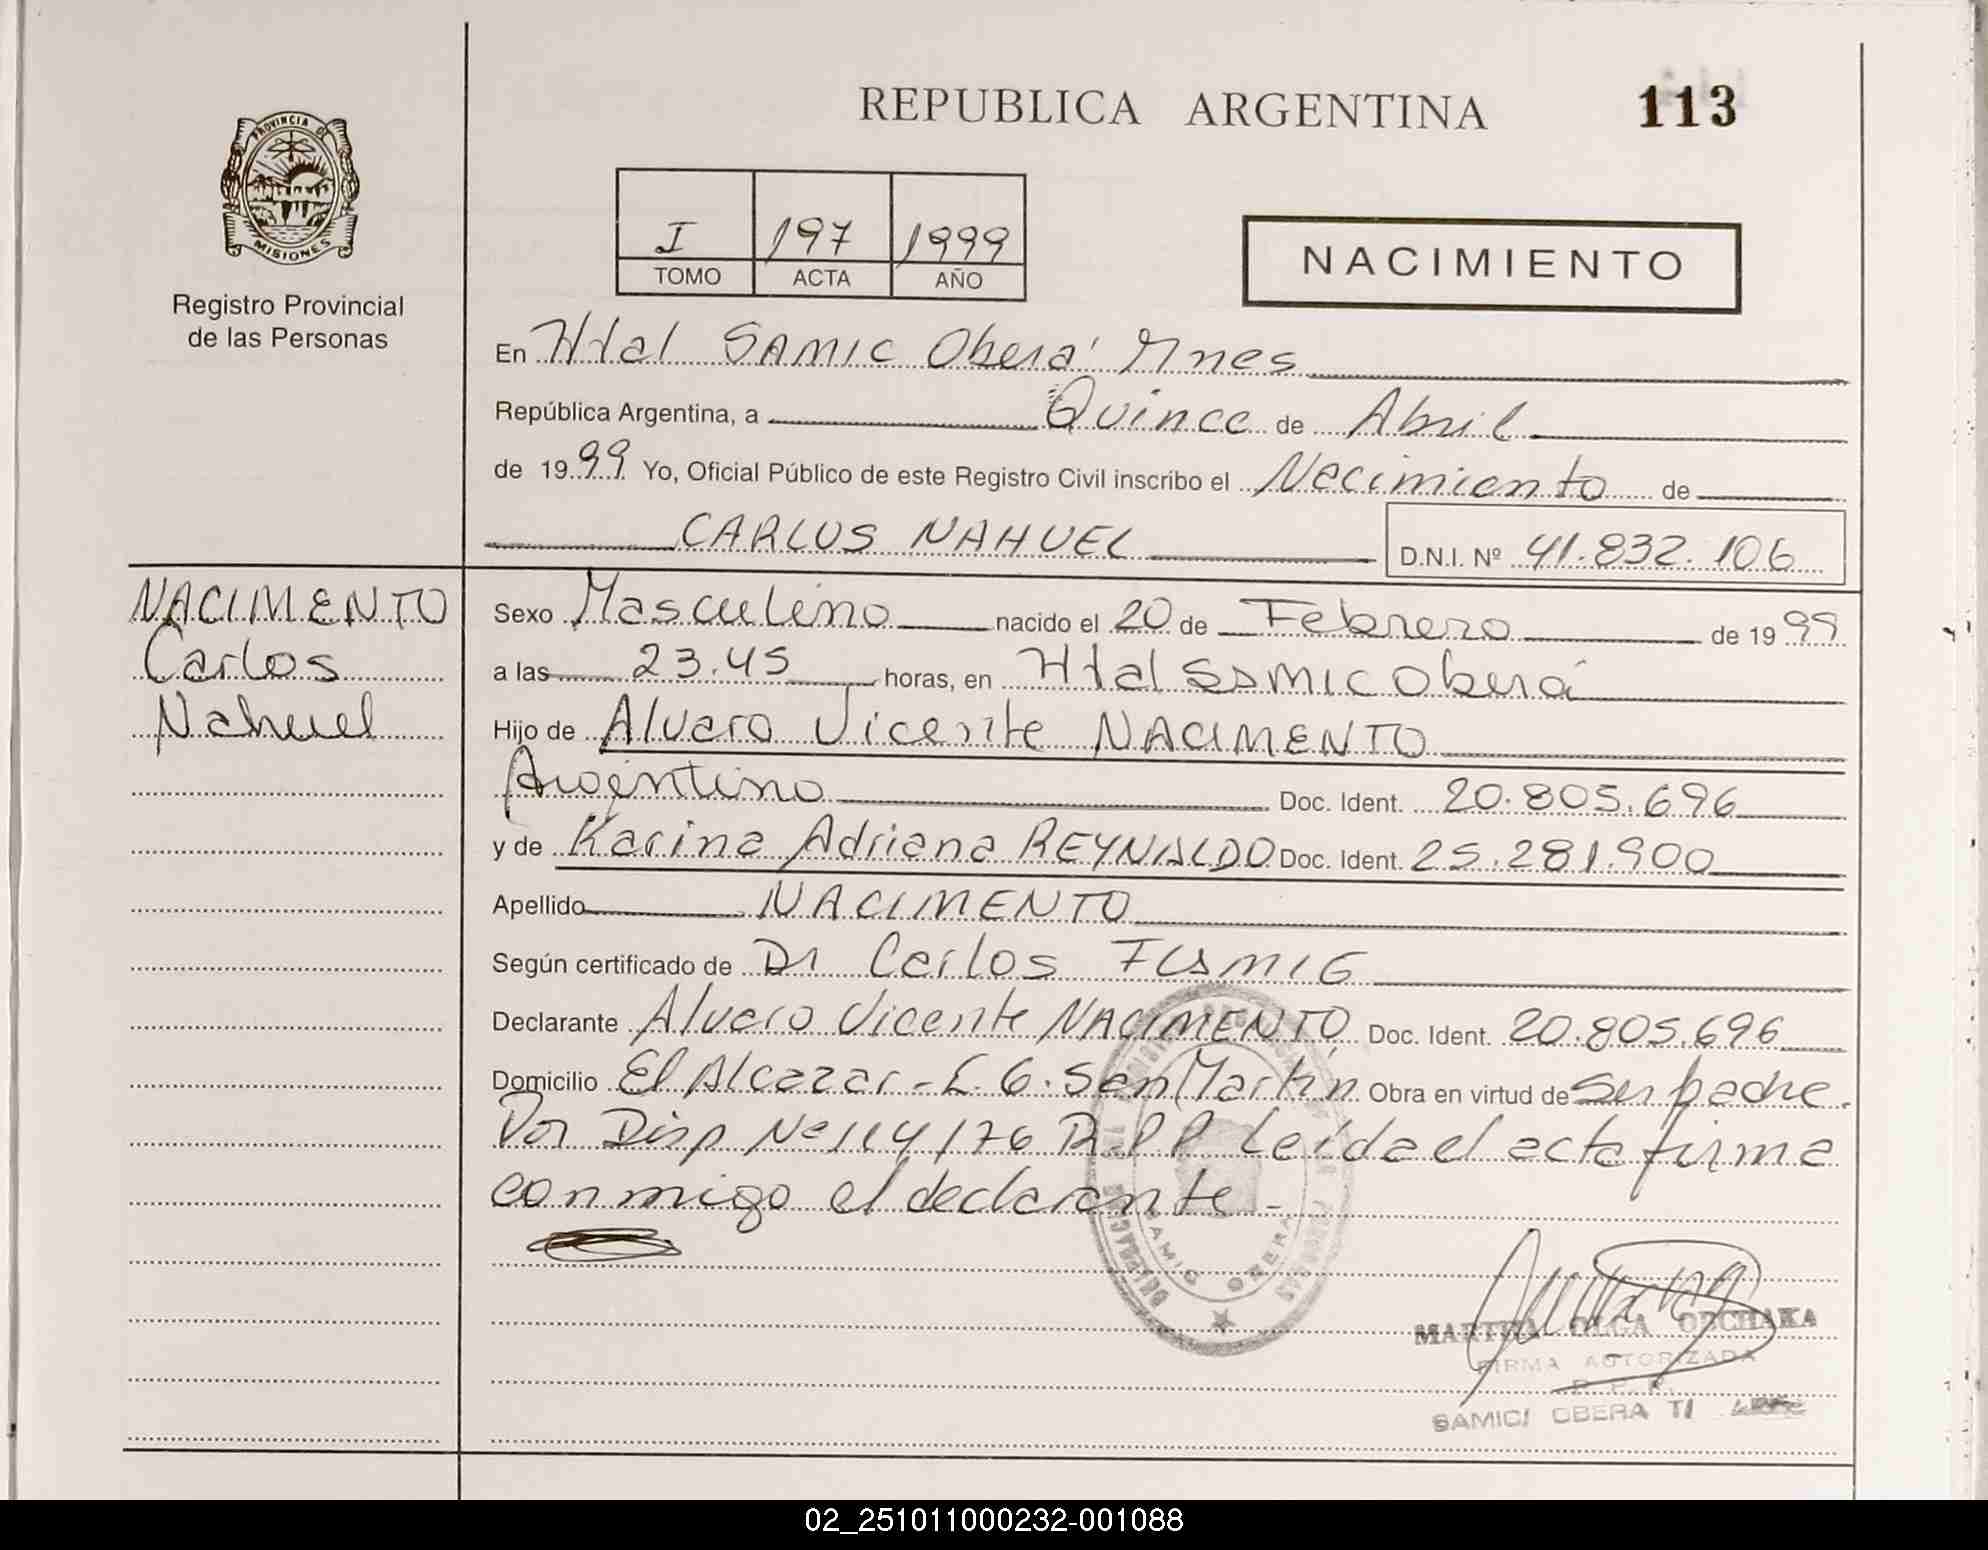 REPUBLICA ARGENTINA 113
PROVINCIA DE MISIONES
Registro Provincial
de las Personas
I 197 1999
TOMO ACTA AÑO
NACIMIENTO
En Htal SAMIC Oberá Mnes
República Argentina, a Quince de Abril
de 1999 Yo, Oficial Público de este Registro Civil inscribo el Necimiento de
CARLOS NAHUEL D.N.I. Nº 41.832.106
NACIMENTO
Carlos
Nahuel
Sexo Masculino nacido el 20 de Febrero de 1999
a las 23.45 horas, en Htal SAMIC Oberá
Hijo de Alvaro Vicente NACIMENTO
Argentino Doc. Ident. 20.805.696
y de Karina Adriana REYNALDO Doc. Ident. 25.281.900
Apellido NACIMENTO
Según certificado de Dr Carlos
Declarante Alvaro Vicente NACIMENTO Doc. Ident. 20.805.696
Domicilio El Alcazar - L. G. San Martín Obra en virtud de Ser padre.
Por Disp Nº 114/76 R.P.P. Leída el acta firma
conmigo el declarante -
SAMIC OBERA
MARTHA OLGA
FIRMA AUTORIZADA
R. P. P.
SAMIC OBERA
02_251011000232-001088